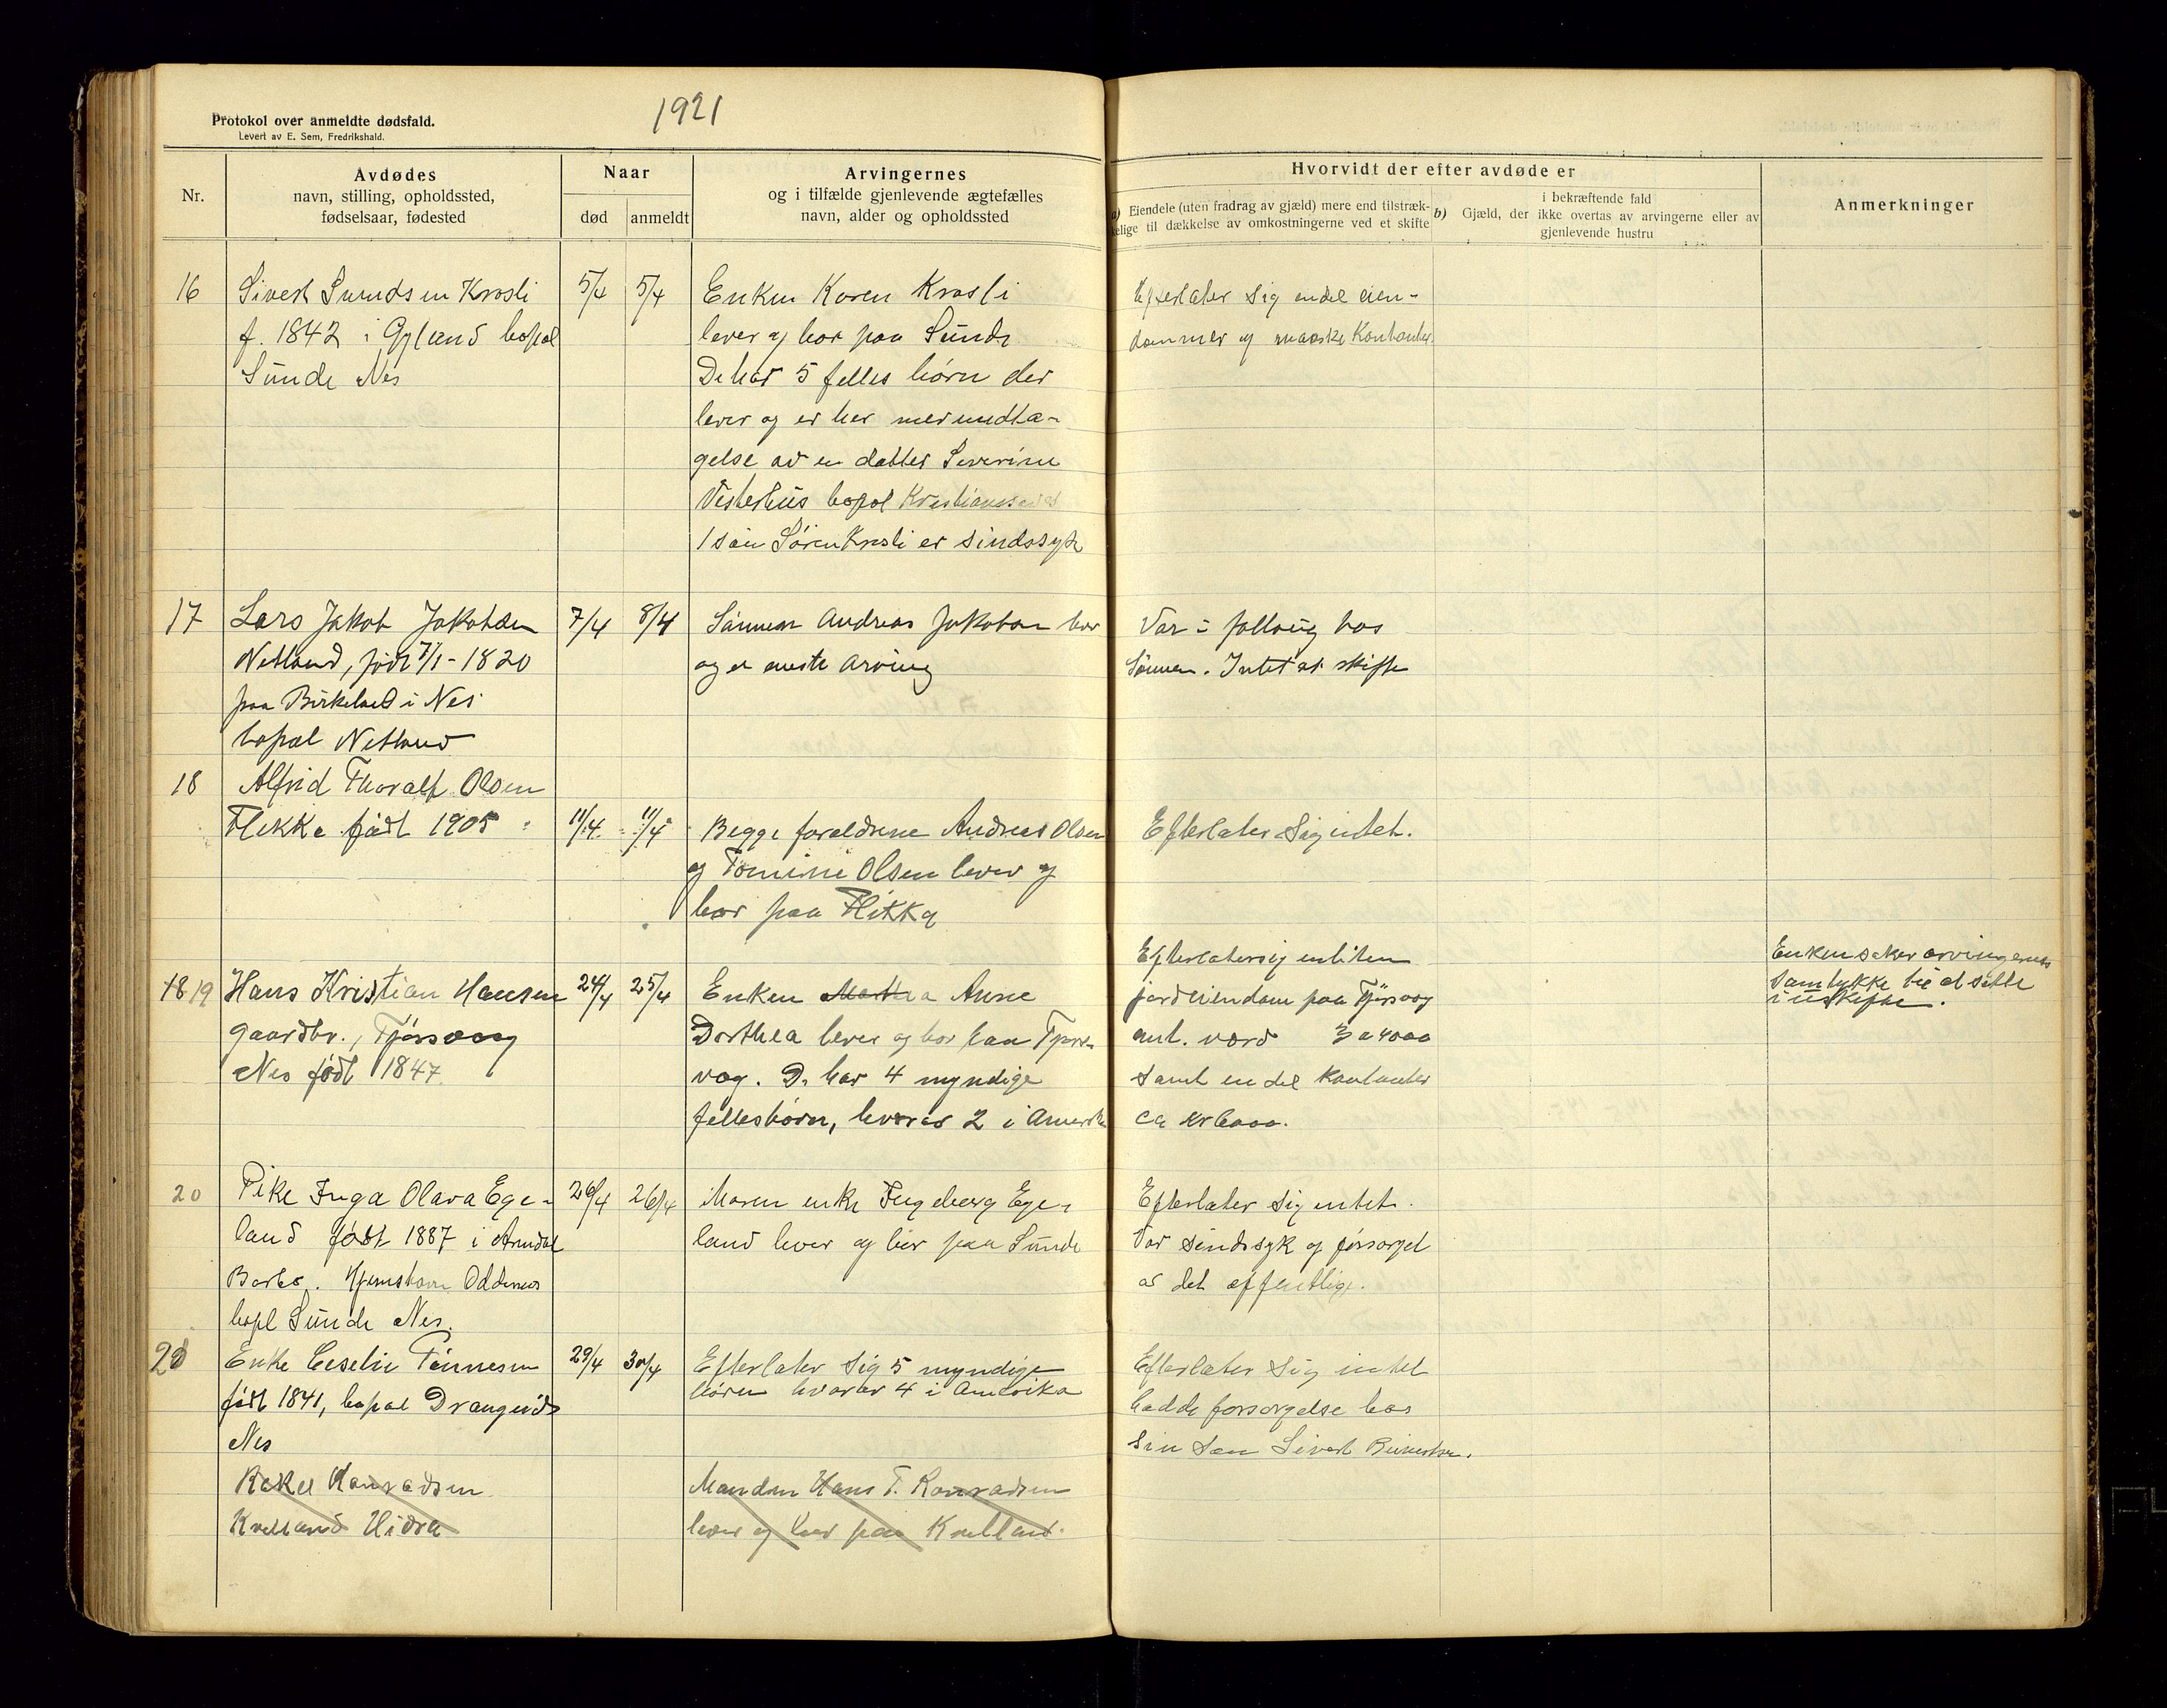 1921
Protokol over anmeldte dødsfald.
Levert av E. Sem, Fredrikshald.
Nr.
Avdødes
navn, stilling, opholdssted,
fødselsaar, fødested
Naar
død
anmeldt
Arvingernes
og i tilfælde gjenlevende ægtefælles
navn, alder og opholdssted
Hvorvidt der efter avdøde er
a) Eiendele (uten fradrag av gjæld) mere end tilstræk-
kelige til dækkelse av omkostningerne ved et skifte
b) Gjæld, der
i bekræftende fald
ikke overtas av arvingerne eller av
gjenlevende hustru
Anmerkninger
16
Sivert Sundsen Krosli
f. 1842 i Gyland bopæl
Sunde Nes
5/4
5/4
Enken Karen Krosli
lever og bor paa Sunde
De har 5 felles børn der
lever og er her med undta-
gelse av en datter Severine
Vesterhus bopæl Kristianssand
1 søn Søren Krosli er sindssyk
Efterlater sig endel eien-
dommer og maaske Kontanter.
17
Lars Jakob Jakobsen
Netland, født 7/1-1820
paa Birkeland i Nes
bopæl Netland
7/4
8/4
Sønnen Andreas Jakobsen bor
og er eneste arving
Var i follaug hos
Sønnen. Intet at skifte
18
Alfrid Thoralf Olsen
Flikke født 1905
11/4
11/4
Begge foreldrene Andreas Olsen
og Tomine Olsen lever og
bor paa Flikke
Efterlater sig intet.
18 19
Hans Kristian Hansen
gaardbr., Tjørsvaag
Nes født 1847
24/4
25/4
Enken Martha Anne
Dorthea lever og bor paa Tjørs-
vog. De har 4 myndige
fellesbørn, hvorav 2 i Amerika
Efterlater sig en liten
jordeiendom paa Tjörsvog
ant. værd 3 a 4000
samt en del kontanter
ca kr 6000.
Enken søker arvingernes
samtykke til at sitte
i uskifte.
20
Pike Inga Olava Ege-
land født 1887 i Arendal
Barbo. Hjemstavn Oddernes
bopl Sunde Nes.
26/4
26/4
Moren enke Ingeborg Ege-
land lever og bor paa Sunde
Efterlater sig intet.
Var sindssyk og forsørget
av det offentlige.
21
Enke Ceselie Tønnesen
født 1841, bopæl Drangeid
Nes
29/4
30/4
Efterlater sig 5 myndige
børn hvorav 4 i Amerika
Efterlater sig intet
hadde forsørgelse hos
sin søn Sivert
Rakel Konradsen
Kvelland Hidra
Manden Hans T. Konradsen
lever og bor paa Kvelland.